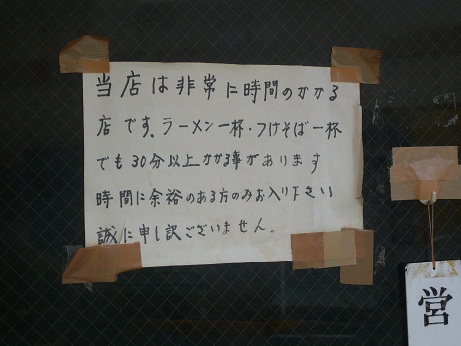 当店は非常に時間のかかる
店です。ラーメン一杯・つけそば一杯
でも30分以上かかる事があります
時間に余裕のある方のみお入り下さい
誠に申し訳ございません。
営